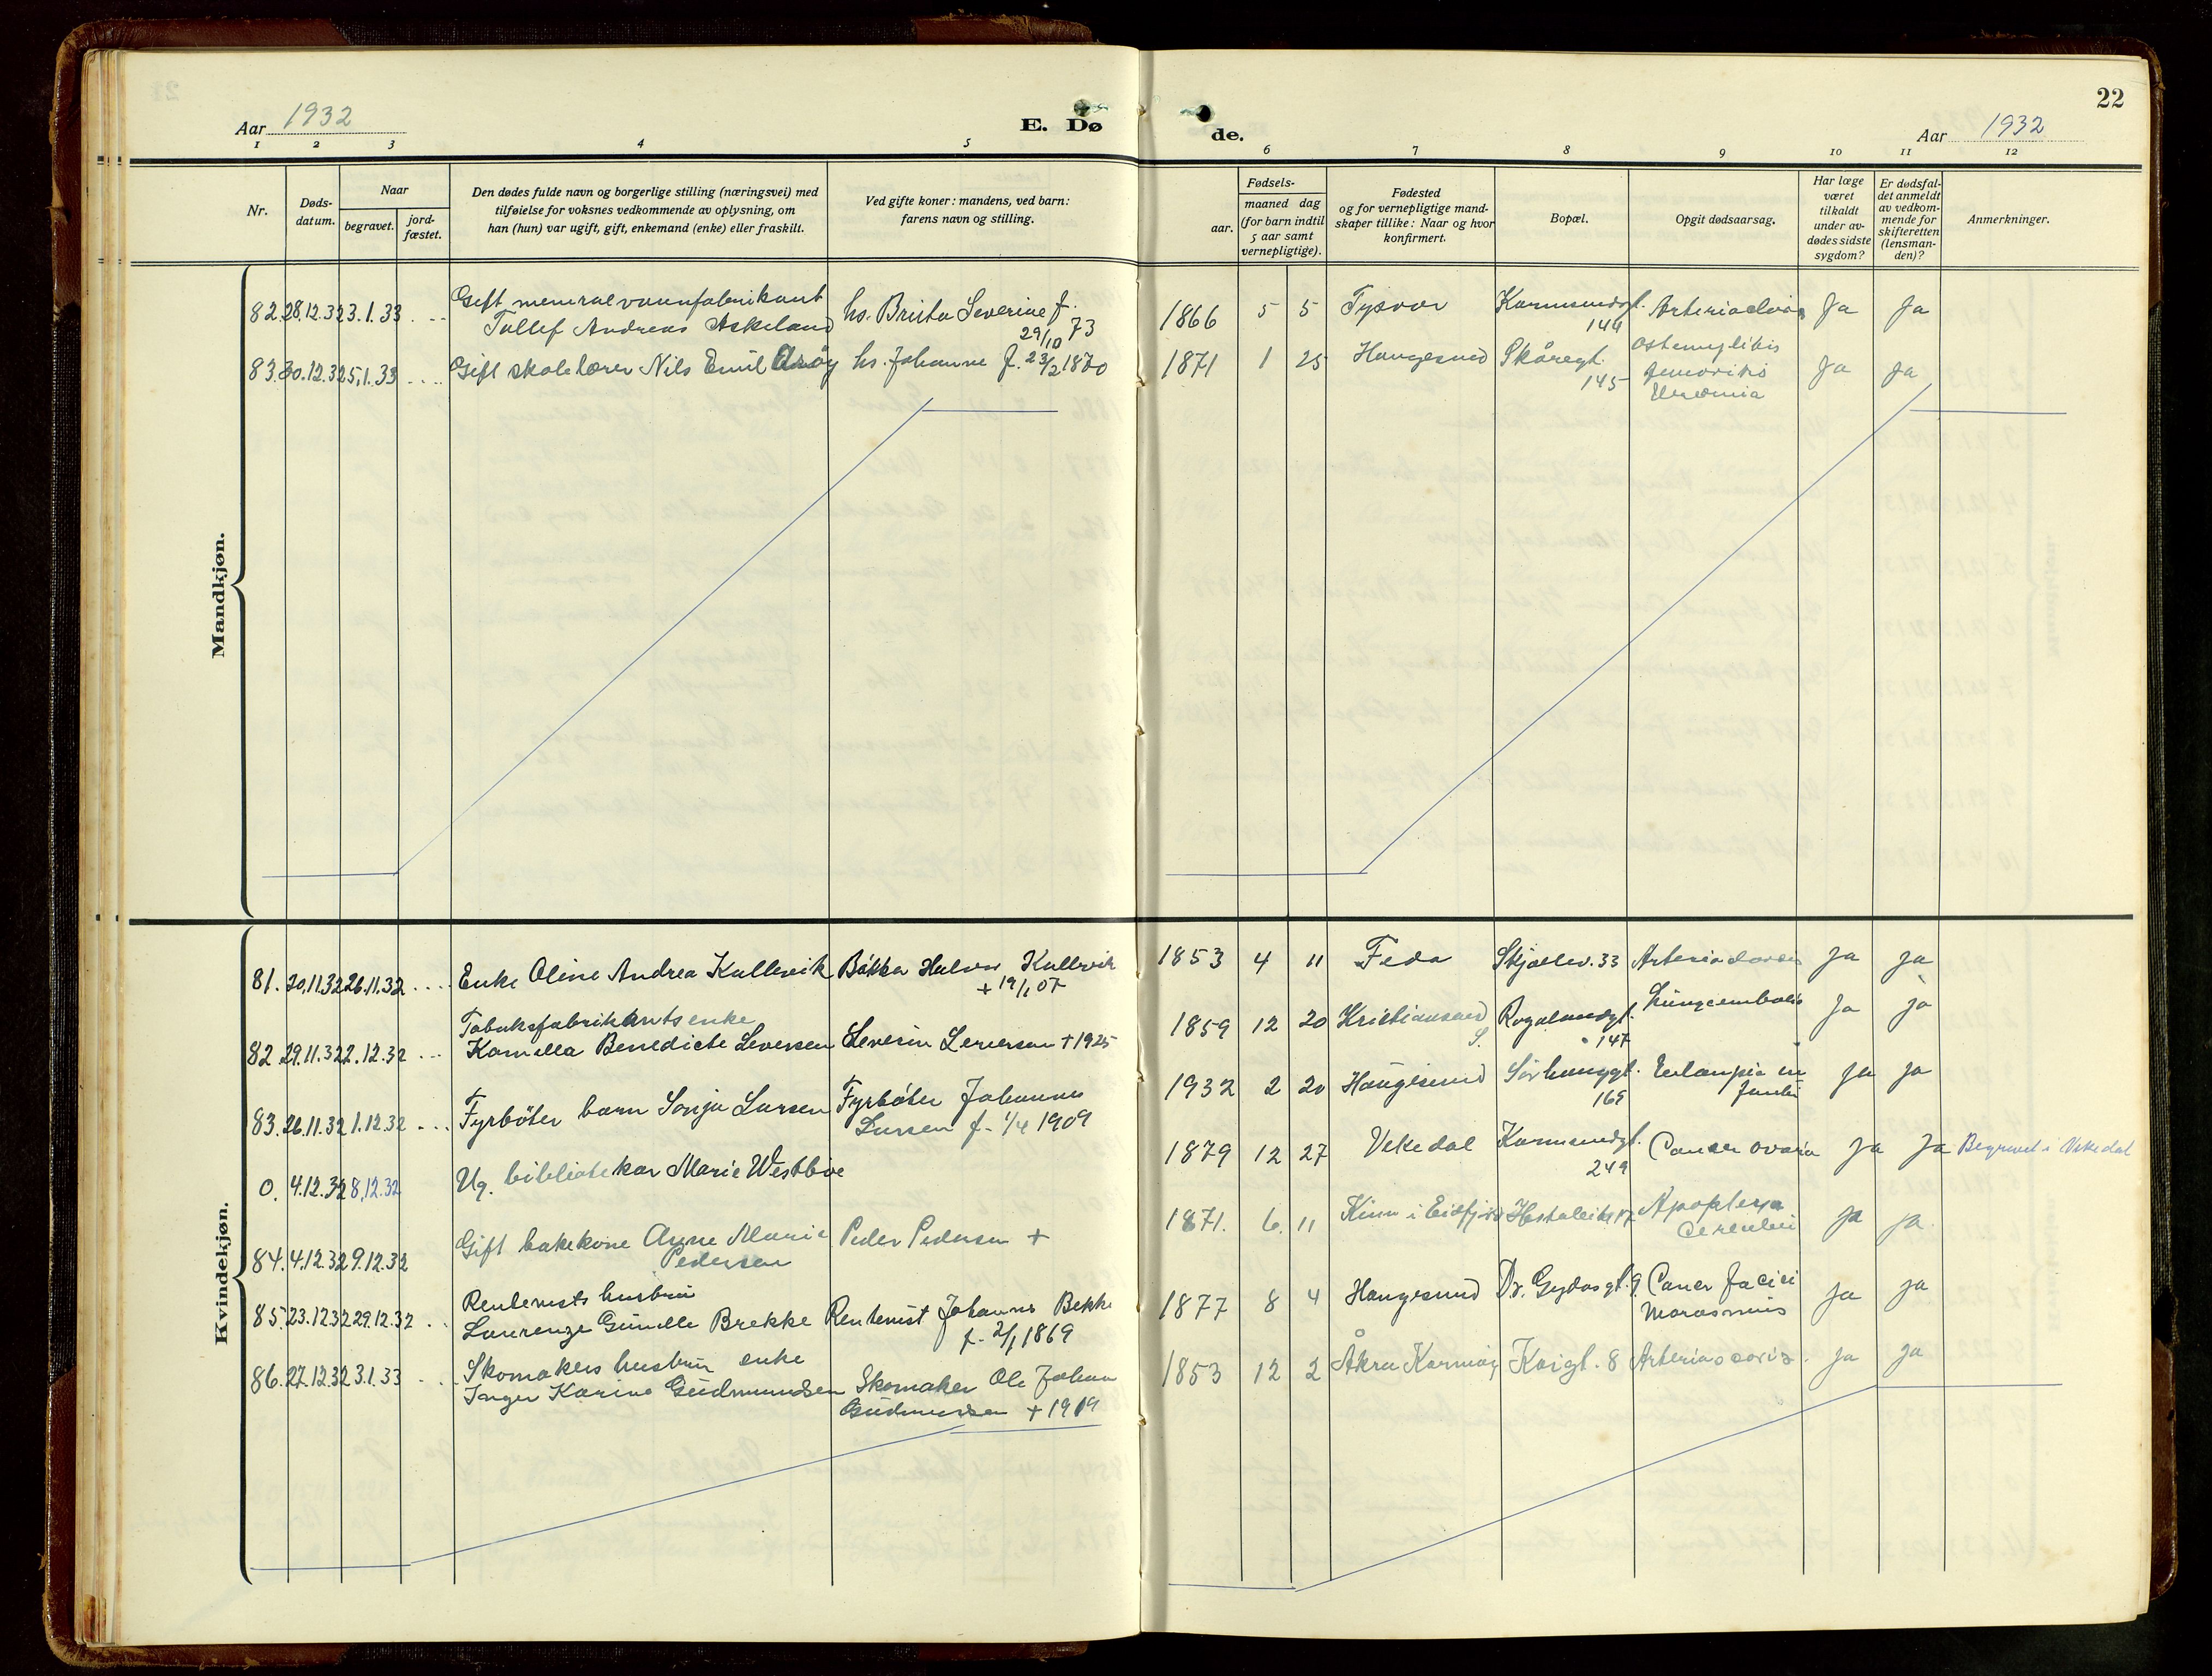 22
Aar 1932
E. Dø
de.
Aar 1932
1 2 3 4 5 6 7 8 9 10 11 12
Nr.
Døds-
datum.
Naar
begravet.
jord-
fæstet.
Den dødes fulde navn og borgerlige stilling (næringsvei) med
tilføielse for voksnes vedkommende av oplysning, om
han (hun) var ugift, gift, enkemand (enke) eller fraskilt.
Ved gifte koner: mandens, ved barn:
farens navn og stilling.
Fødsels-
aar.
maaned dag
(for barn indtil
5 aar samt
vernepligtige).
Fødested
og for vernepligtige mand-
skaper tillike: Naar og hvor
konfirmert.
Bopæl.
Opgit dødsaarsag.
Har læge
været
tilkaldt
under av-
dødes sidste
sygdom?
Er dødsfal-
det anmeldt
av vedkom-
mende for
skifteretten
(lensman-
den)?
Anmerkninger.
Mandkjøn.
82. 28.12.32 3.1.33 Gift mineralvannfabrikant
Tollef Andreas Askeland hs. Brista Severine f.
29/10 73
1866 5 5 Tysvor Karmsundgt.
144 Ja Ja
83. 30.12.32 5.1.33 Gift skolelærer Nils Emil Arøy hs. Johanne f. 23/2 1870
1871 1 25 Haugesund Skåregt.
145 Ostemyelitis
femoris
Uræmia Ja Ja
Kvindekjøn.
81. 20.11.32 26.11.32 Enke Oline Andrea Kallevik Bøkker Halvor Kallevik
+ 19/1 07
1853 4 11 Feda Skjoldev. 33 Ja Ja
82 29.11.32 2.12.32 Tobaksfabrikants enke
Kamilla Benedicte Seversen Severin Seversen + 1925
1859 12 20 Kristiansand
S. Rogalandgt.
147 Lungeemboli Ja Ja
83. 26.11.32 1.12.32 Fyrbøter barn Sonja Larsen Fyrbøter Johannes
Larsen f. 1/4 1909
1932 2 20 Haugesund Sørhauggt.
169 Ja Ja
0. 4.12.32 8.12.32 Ug. bibliotekar Marie Westbøe
1879 12 27 Vikedal Karmsundgt.
249 Cancer ovaria Ja Ja Begravet i Vikedal
84. 4.12.32 9.12.32 Gift bakekone Anne Marie
Pedersen Peder Pedersen +
1871. 6. 11 Kinn i Eidfjord Apoplexia
Cerebri Ja Ja
85. 23.12.32 29.12.32 Rentenists hustru
Laurenze Gunelle Brekke Rentenist Johannes Bekke
f. 2/1 1869
1877 8 4 Haugesund Dr. Gydasgt. 9 Cancer faciei
Marasmus Ja Ja
86. 27.12.32 3.1.33 Skomakers hustru enke
Inger Karine Gudmundsen Skomaker Ole Johan
Gudmundsen + 1919
1853 12 2 Åkra Karmøy Kaigt. 8 Ja Ja